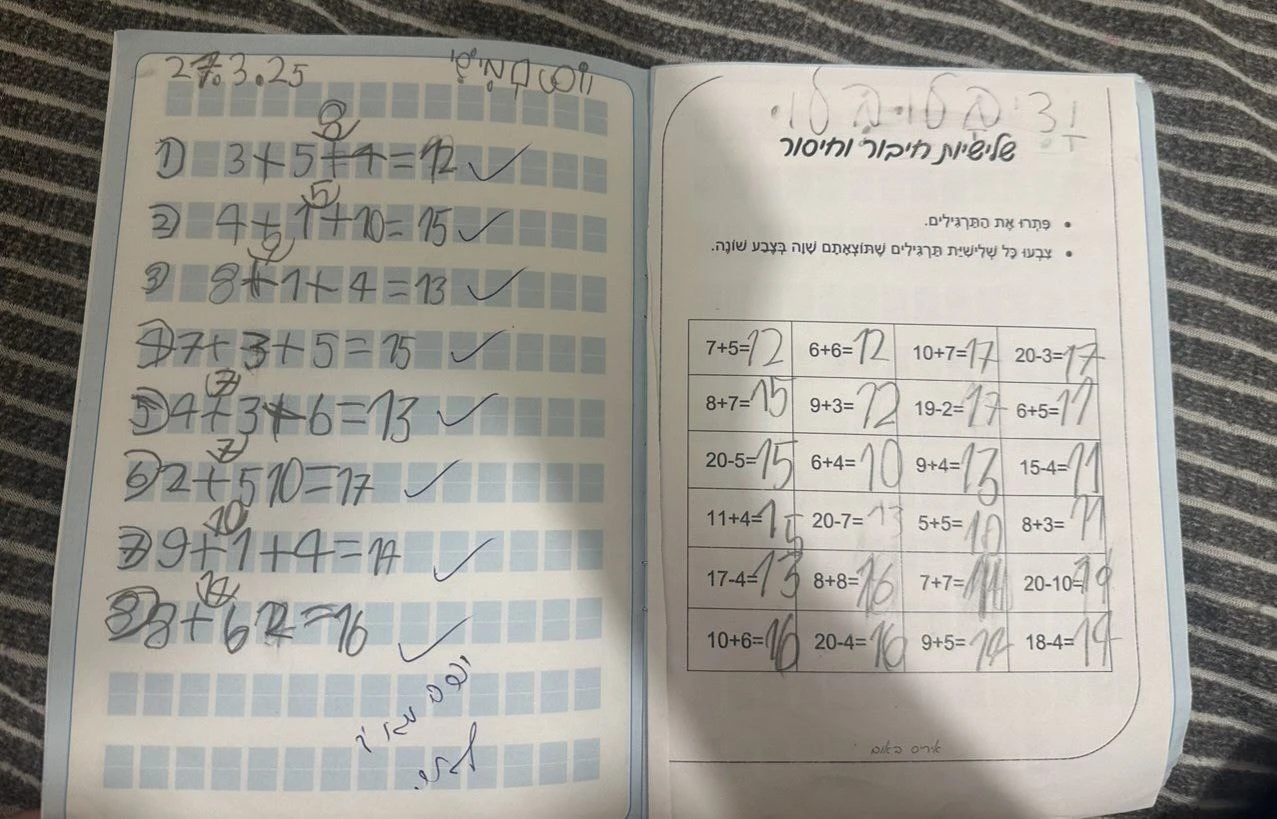 27.3.25
8
1) 3+5+4=12 ✓
5
2) 4+1+10=15 ✓
9
3) 8+1+4=13 ✓
4) 7+3+5=15 ✓
7
5) 4+3+6=13 ✓
7
6) 2+5 10=17 ✓
10
7) 9+1+4=14 ✓
14
8) 8+6 2=16 ✓
יפה מאוד
שלישיות חיבור וחיסור
• פִּתְרוּ אֶת הַתַּרְגִּילִים.
• צִבְעוּ כָּל שְׁלִישִׁיַּת תַּרְגִּילִים שֶׁתּוֹצָאָתָם שָׁוָה בְּצֶבַע שׁוֹנֶה.
7+5=12 6+6=12 10+7=17 20-3=17
8+7=15 9+3=12 19-2=17 6+5=11
20-5=15 6+4=10 9+4=13 15-4=11
11+4=15 20-7=13 5+5=10 8+3=11
17-4=13 8+8=16 7+7=14 20-10=10
10+6=16 20-4=16 9+5=14 18-4=14
איריס באום